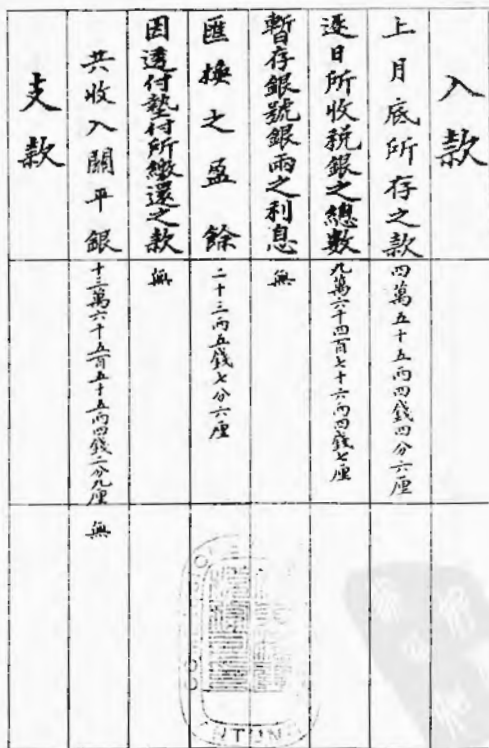 入款
上月底所存之款
四萬五十五兩四錢四分六厘
逐日所收稅銀之總數
九萬六千四百七十六兩四錢七厘
暫存銀號銀兩之利息
無
匯換之盈餘
二十三兩五錢七分六厘
因透付墊付所繳還之款
無
共收入關平銀
十三萬六千五百五十五兩四錢二分九厘
無
支款